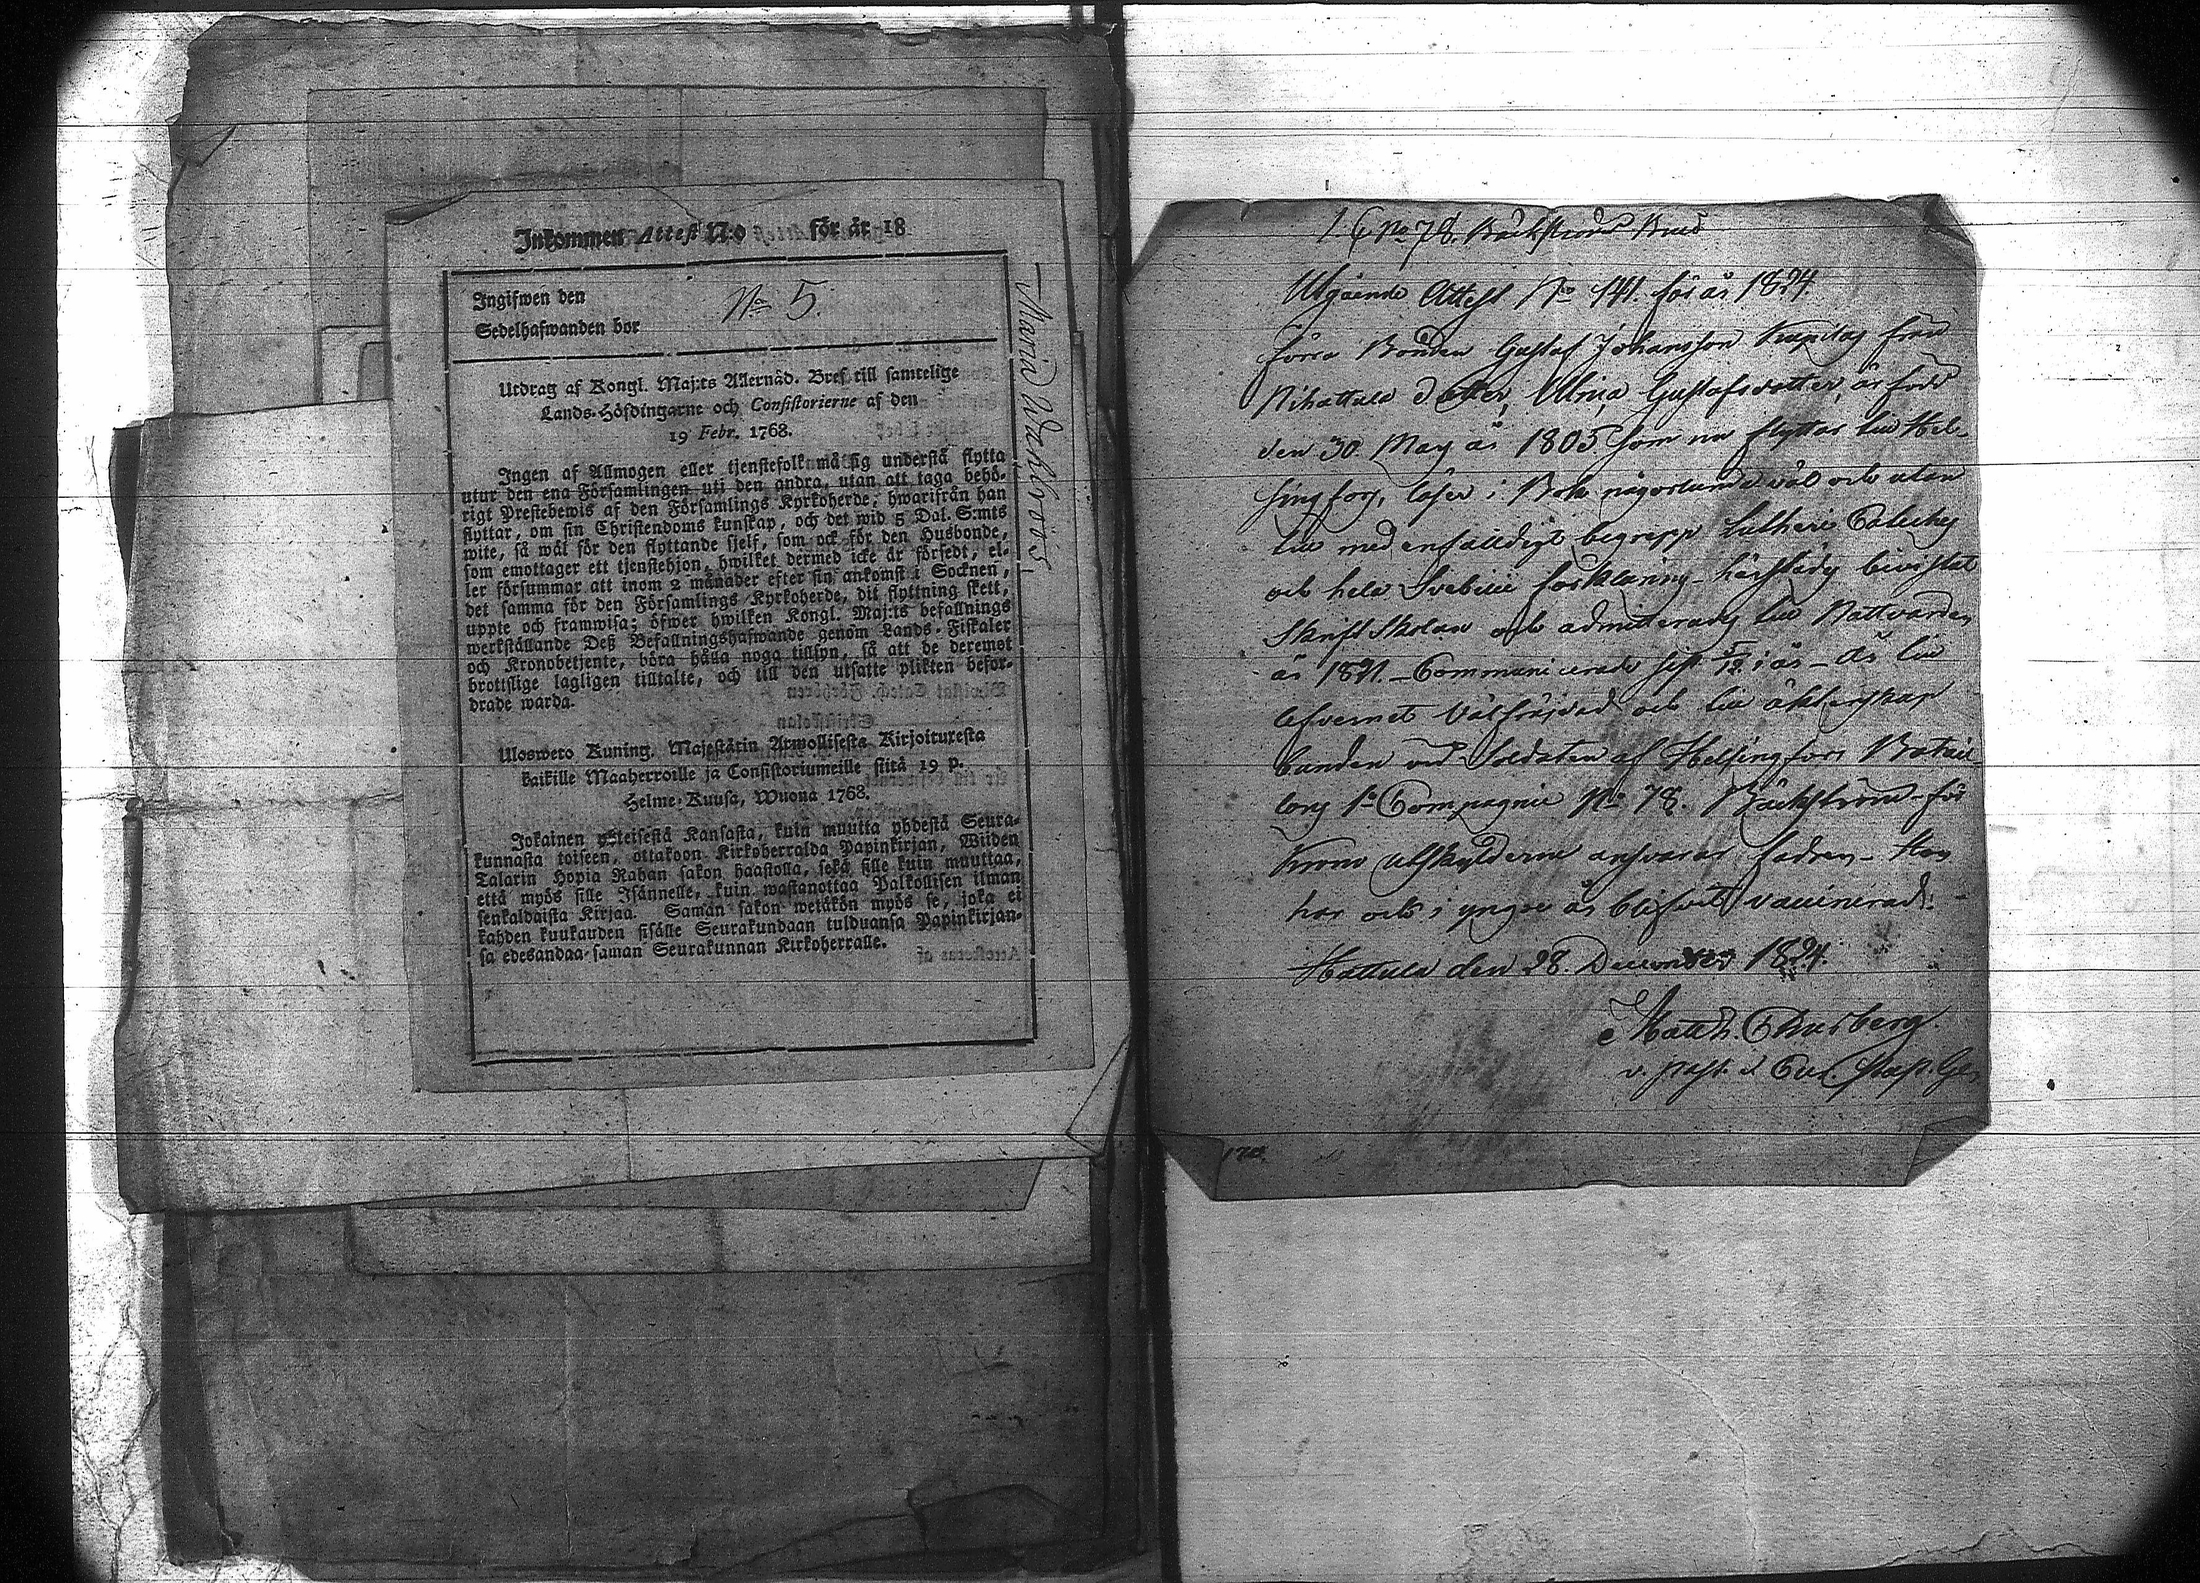 Inkommen Attest N:o för år 18
Ingifwen den
Sedelhafwanden bor
No 5.
Maria Wahlroos
Utdrag af Kongl. Maj:ts Allernåd. Bref till samtelige
Lands-Höfdingarne och Consistorierne af den
19 Febr. 1768.
Ingen af Allmogen eller tjenstefolk må sig understå flytta
utur den ena Församlingen uti den andra, utan att taga behö-
rigt Prestebewis af den Församlings Kyrkoherde, hwarifrån han
flyttar, om sin Christendoms kunskap, och det wid 5 Dal. S:mts
wite, så wäl för den flyttande sjelf, som ock för den Husbonde,
som emottager ett tjenstehjon, hwilket dermed icke är försedt, el-
ler försummar att inom 2 månader efter sin ankomst i Socknen,
det samma för den Församlings Kyrkoherde, dit flyttning skett,
uppte och framwisa; öfwer hwilken Kongl. Maj:ts befallnings
werkställande Deß Befallningshafwande genom Lands-Fiskaler
och Kronobetjente, böra hålla noga tillsyn, så att de deremot
brottslige lagligen tilltalte, och till den utsatte plikten befor-
drade warda.
Ulosweto Kuning. Majestätin Armollisesta Kirjoituxesta
kaikille Maaherroille ja Consistoriumeille siitä 19 p.
Helme-Kuusa, Wuona 1768.
Jokainen yhteisestä Kansasta, kuin muutta yhdestä Seura-
kunnasta toiseen, ottakoon Kirkoherralda Papinkirjan, Wiiden
Talarin Hopia Rahan sakon haastolla, sekä sille kuin muuttaa,
että myös sille Isännelle, kuin wastanottaa Palkollisen ilman
senkaldaista Kirjaa. Saman sakon wetäkön myös se, joka ei
kahden kuukauden sisälle Seurakundaan tulduansa Papinkirjan-
sa edesandaa saman Seurakunnan Kirkoherralle.
1. C No 78. Bäckströms Brud
Utgående Attest No 141. för år 1824.
Förra Bonden Gustaf Johansson Kapilas från
Nihattula dotter, Ulrica Gustafsdotter, är född
den 30. May år 1805 som nu flyttar till Hel-
singfors, läser i Bok någorlunda väl och utan
till med enfaldigt begrepp Lutheri Cateches
och hela Svebilii förklaring - härstädes bivistat
Skrift Skolan och admitterades till Nattvarden
år 1821. - Communicerade sist i år - Är till
lefvernet Välfräjdad och till äktenskap
bunden vid Soldaten af Helsingfors Batail-
lons 1a Compagnie No 78. Bäckström - för
Krono utskylderne ansvarar fadren - Hon
har och i yngre år blifvit vaccinerad:
Hattula den 28. December 1824.
Matth. Churberg.
v. past.